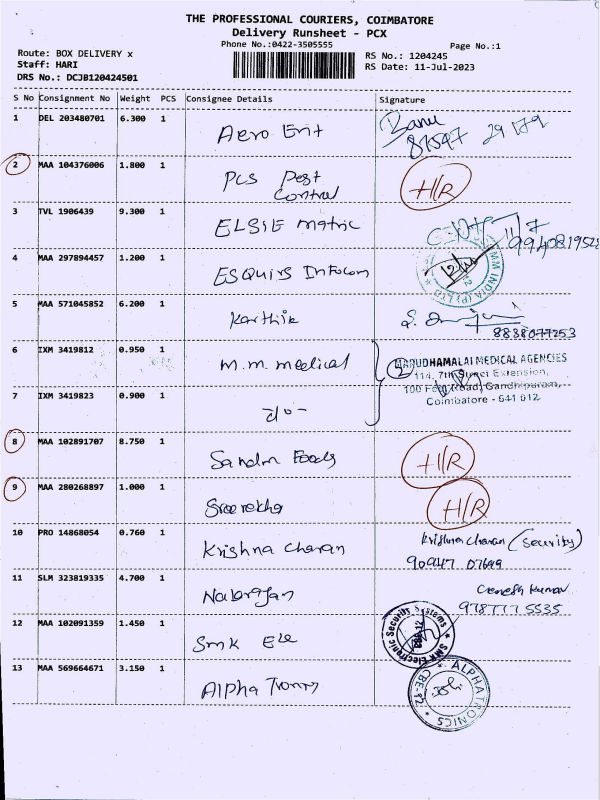 THE PROFESSIONAL COURIERS, COIMBATORE
Delivery Runsheet - PCX
Phone No.:0422-3505555
Page No.:1
Route: BOX DELIVERY x
Staff: HARI
DRS No.: DCJB120424501
RS No.: 1204245
RS Date: 11-Jul-2023
S No Consignment No Weight PCS Consignee Details Signature
1 DEL 203480701 6.300 1 Aero Ent
2 MAA 104376006 1.800 1 PCS Pest Control H/R
3 TVL 1906439 9.300 1 ELSIE matric 11/7
9940819528
4 MAA 297894457 1.200 1 ESQUIRS Infocom
5 MAA 571045852 6.200 1 Karthik
8838077253
6 IXM 3419812 0.950 1 M.M. medical
MARUDHAMALAI MEDICAL AGENCIES
114, 7th Street Extension,
100 Feet Road, Gandhipuram,
Coimbatore - 641 012
7 IXM 3419823 0.900 1 do-
8 MAA 102891707 8.750 1 Foods H/R
9 MAA 280268897 1.000 1 Sreerekha H/R
10 PRO 14868054 0.760 1 Krishna Charan Krishna Charan (Security)
90947 07699
11 SLM 323819335 4.700 1 Natarajan Ganesh Kumar
97877 75535
12 MAA 102091359 1.450 1 SMK Ele
SMK Electronic Security Systems
13 MAA 569664671 3.150 1 Alpha Tronics
ALPHATRONICS
CBE-12